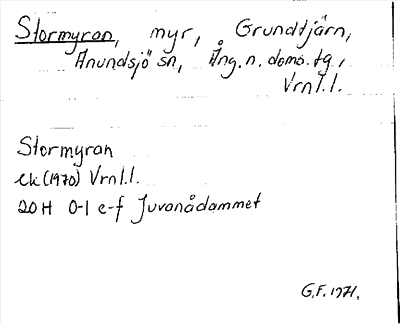 Stormyran, myr, Grundtjärn,
Anundsjö sn, Ång. n. doms. tg.,
Vrnl.l.
Stormyran
ek (1970) Vrnl.l.
20H 0-1 e-f Juvanådammet
G.F. 1971.